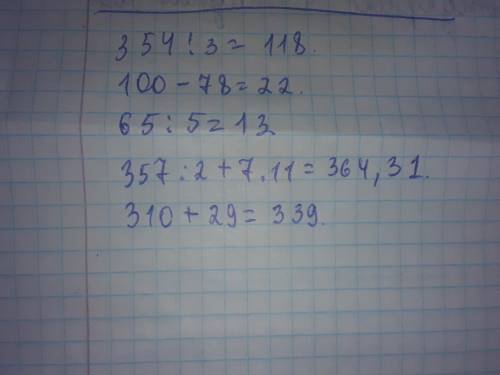 354:3=118.
100-78=22.
65:5=13
357:2+7.11=364,31.
310+29=339.